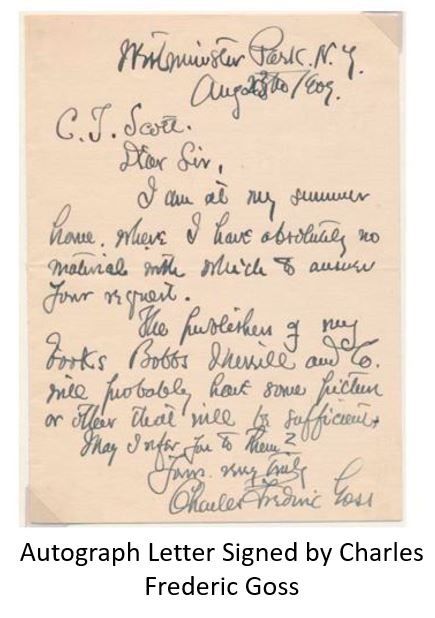 Westminster Park. N.Y.
Aug 1909.
C. J. Scott.
Dear Sir,
I am at my summer
home. where I have absolutely no
material with which to answer
your request.
The publishers of my
books Bobbs Merrill and Co.
will probably have some picture
or other that will be sufficient.
May I refer you to them?
Yours very truly
Charles Frederic Goss
Autograph Letter Signed by Charles
Frederic Goss